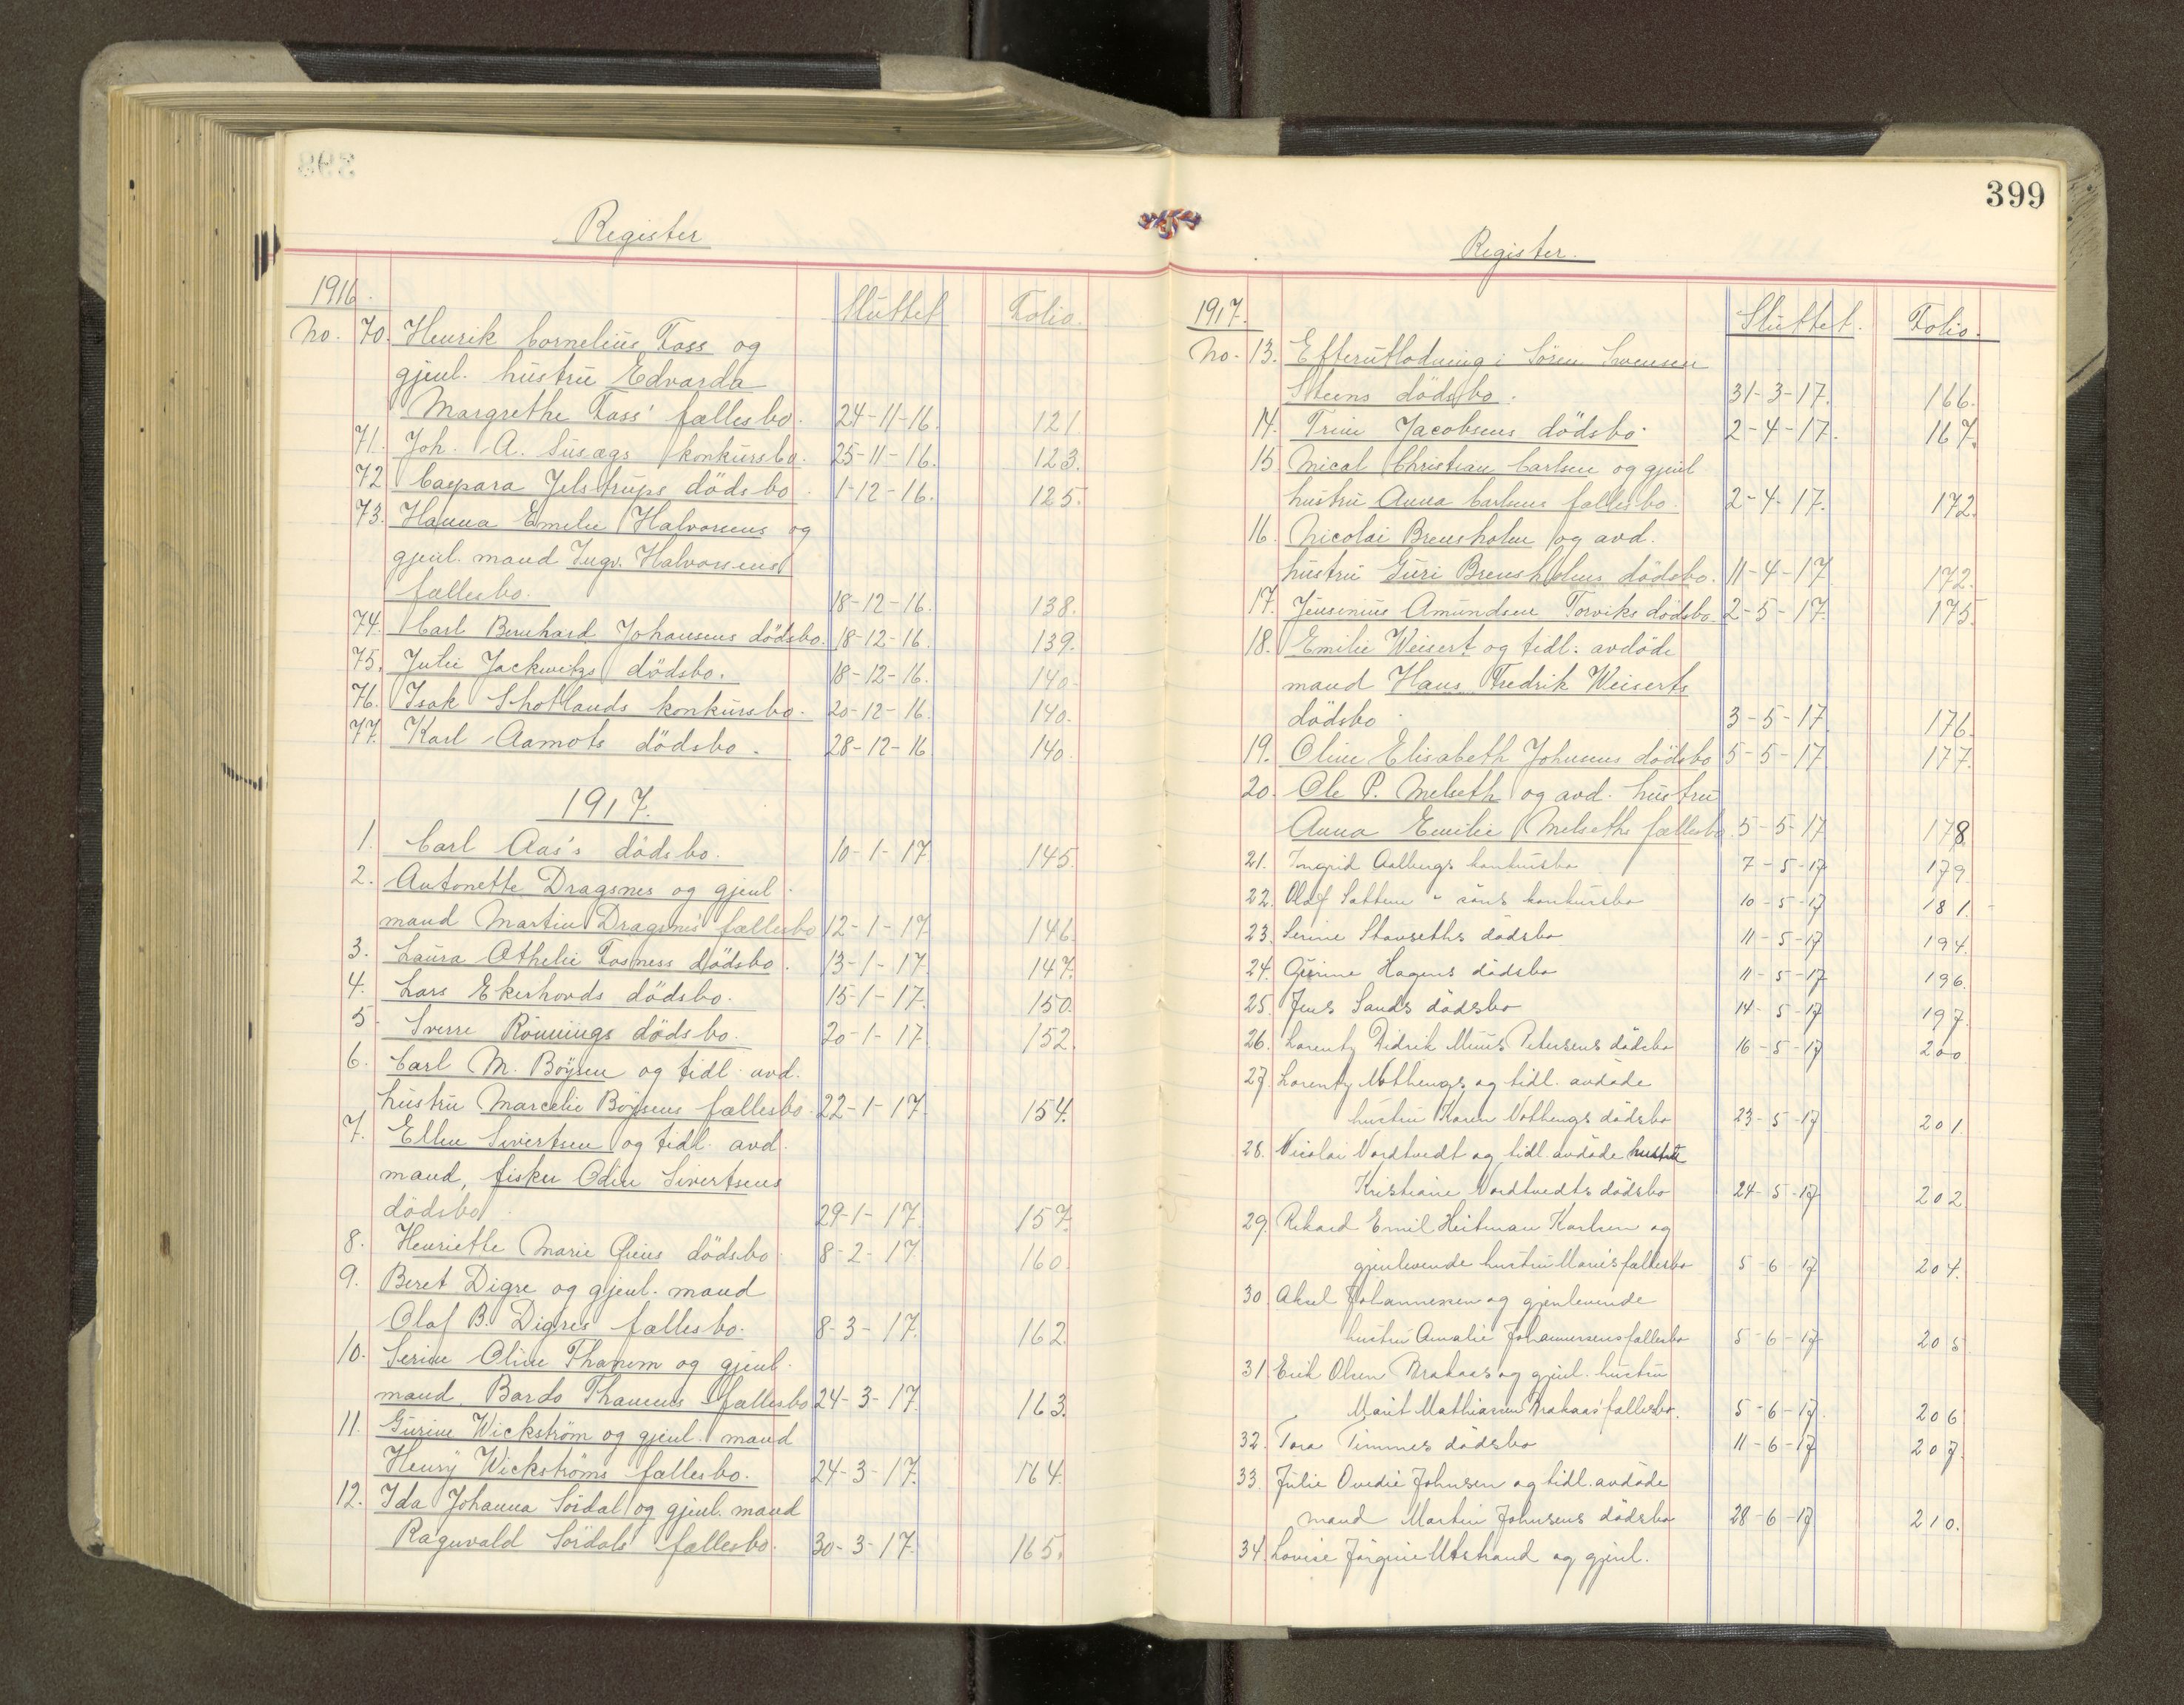 398
Register
1916.
Sluttet
Folio.
No. 70. Henrik Cornelius Foss og
gjenl. hustru Edvarda
Margrethe Foss' fællesbo. 24-11-16. 121.
71. Joh. A. Susægs konkursbo. 25-11-16. 123.
72 Caspara Jelstrups dödsbo. 1-12-16. 125.
73. Hanna Emelie Halvorsens og
gjenl. mand Ingv. Halvorsens
fællesbo. 18-12-16. 138.
74. Carl Bernhard Johansens dödsbo. 18-12-16. 139.
75. Julie Jackwitzs dödsbo. 18-12-16. 140.
76. Isak Shotlands konkursbo. 20-12-16. 140.
77. Karl Aamots dödsbo. 28-12-16 140.
1917.
1. Carl Aas's dödsbo. 10-1-17. 145.
2. Antonette Dragsnes og gjenl.
mand Martin Dragsnes' fællesbo 12-1-17 146.
3. Laura Athelie Fosness dödsbo. 13-1-17. 147.
4. Lars Ekerhovds dödsbo. 15-1-17. 150.
5. Sverre Rönnings dödsbo. 20-1-17. 152.
6. Carl M. Böysen og tidl. avd.
hustru Marcelie Böysens fællesbo. 22-1-17. 154.
7. Ellen Sivertsen og tidl. avd.
mand, fisker Odin Sivertsens
dödsbo. 29-1-17. 157.
8. Henriette Marie dödsbo. 8-2-17. 160.
9. Beret Digre og gjenl. mand
Olaf B. Digres fællesbo. 8-3-17. 162.
10. Serine Oline Thanem og gjenl.
mand Bardo Thanems fællesbo 24-3-17. 163.
11. Gurine Wickström og gjenl. mand
Henry Wickströms fællesbo. 24-3-17. 164.
12. Ida Johanna Sördal og gjenl. mand
Ragnvald Sördals fællesbo. 30-3-17. 165.
399
Register.
1917.
Sluttet.
Folio.
No. 13. Efterutlodning i Sören Svensen
Steens dödsbo. 31-3-17. 166.
14. Trine Jacobsens dödsbo. 2-4-17. 167.
15 Mical Christian Carlsen og gjenl
hustru Anna Carlsens fællesbo. 2-4-17. 172.
16. Nicolai Brensholm og avd.
hustru Guri Brensholms dödsbo. 11-4-17 172.
17. Jensenius Amundsen Torviks dödsbo. 2-5-17. 175.
18. Emilie Weisert og tidl. avdöde
mand Hans Fredrik Weiserts
dödsbo. 3-5-17. 176.
19. Oline Elisabeth Johnsens dödsbo 5-5-17 177.
20. Ole P. Melseth og avd. hustru
Anna Emilie Melseths fællesbo. 5-5-17 178
21. Ingrid Aalbergs konkursbo 7-5-17 179.
22. Olaf Sattem - konkursbo 10-5-17 181.
23. Serine Stavseths dödsbo 11-5-17 194.
24. Gurine Hagens dödsbo 11-5-17 196.
25. Jens Sands dödsbo 14-5-17 197.
26. Lorentz Didrik Muus Petersens dödsbo 16-5-17 200
27. Lorentz og tidl. avdöde
hustru Karen dödsbo 23-5-17 201.
28. Nicolai Nordtvedt og tidl. avdöde hustru
Kristiane Nordtvedts dödsbo 24-5-17 202.
29. Rikard Emil Heitman Karlsen og
gjenlevende hustru Marie's fællesbo 5-6-17 204.
30. Aksel Johannessen og gjenlevende
hustru Amalie Johannessens fællesbo 5-6-17 205
31. Erik Olsen Brakaas og gjenl. hustru
Marit Mathiassen Brakaas' fællesbo. 5-6-17. 206
32. Tora Timmes dödsbo 11-6-17 207.
33. Julie Ovedie Johnsen og tidl. avdöde
mand Martin Johnsens dödsbo 28-6-17 210.
34. Lovise Jörgine Utstrand og gjenl.